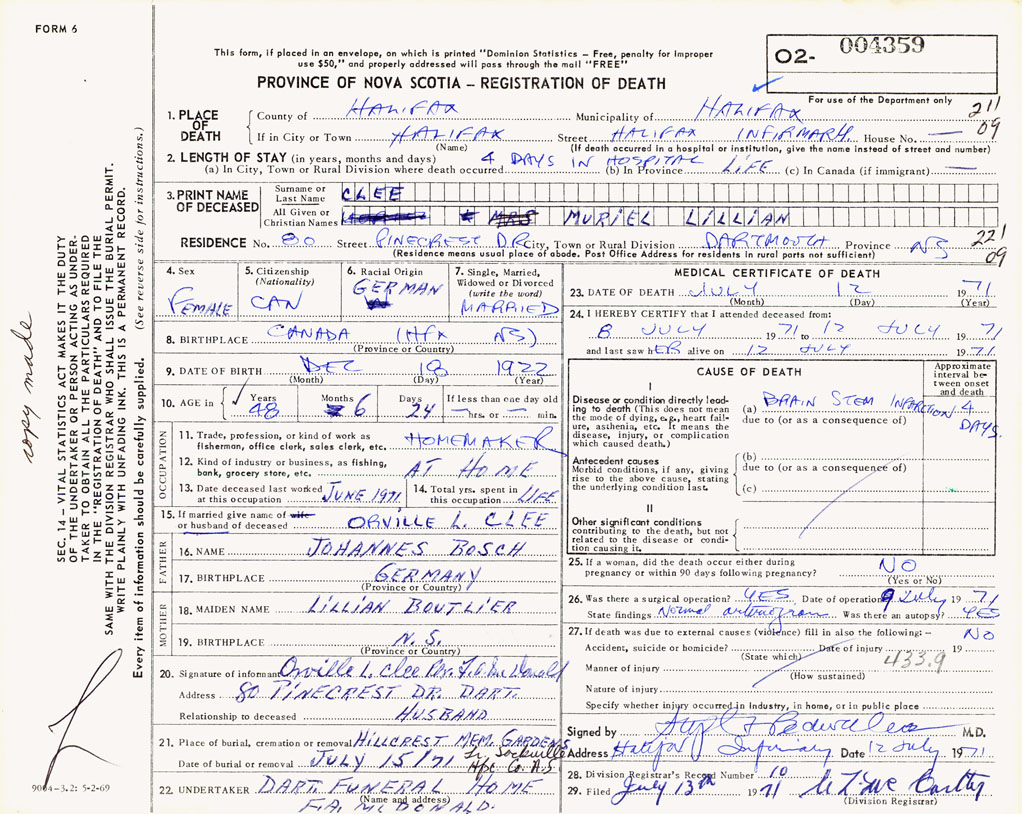 FORM 6
This form, if placed in an envelope, on which is printed "Dominion Statistics – Free, penalty for improper
use $50," and properly addressed will pass through the mail "FREE"
PROVINCE OF NOVA SCOTIA – REGISTRATION OF DEATH
O2- 004359
For use of the Department only
211
09
1. PLACE OF DEATH County of HALIFAX Municipality of HALIFAX
If in City or Town HALIFAX Street HALIFAX INFIRMARY. House No. —
(Name) (If death occurred in a hospital or institution, give the name instead of street and number)
2. LENGTH OF STAY (in years, months and days) 4 DAYS IN HOSPITAL
(a) In City, Town or Rural Division where death occurred (b) In Province LIFE (c) In Canada (if immigrant) —
3. PRINT NAME OF DECEASED
Surname or Last Name CLEE
All Given or Christian Names MRS MURIEL LILLIAN
RESIDENCE No. 80 Street PINECREST DR City, Town or Rural Division DARTMOUTH Province NS
(Residence means usual place of abode. Post Office Address for residents in rural parts not sufficient)
221
09
4. Sex FEMALE
5. Citizenship (Nationality) CAN
6. Racial Origin GERMAN
7. Single, Married, Widowed or Divorced (write the word) MARRIED
8. BIRTHPLACE CANADA (HFX NS)
(Province or Country)
9. DATE OF BIRTH DEC 18 1922
(Month) (Day) (Year)
10. AGE in Years 48 Months 6 Days 24 If less than one day old
— hrs. or — min.
OCCUPATION
11. Trade, profession, or kind of work as
fisherman, office clerk, sales clerk, etc. HOMEMAKER
12. Kind of industry or business, as fishing,
bank, grocery store, etc. AT HOME
13. Date deceased last worked at this occupation JUNE 1971
14. Total yrs. spent in this occupation LIFE
15. If married give name of wife
or husband of deceased ORVILLE L. CLEE
FATHER
16. NAME JOHANNES BOSCH
17. BIRTHPLACE GERMANY
(Province or Country)
MOTHER
18. MAIDEN NAME LILLIAN BOUTLIER
19. BIRTHPLACE N.S.
(Province or Country)
20. Signature of informant Orville L. Clee Per. F.A. McDonald
Address 80 PINECREST DR. DART.
Relationship to deceased HUSBAND
21. Place of burial, cremation or removal HILLCREST MEM. GARDENS
Lr Sackville
Date of burial or removal JULY 15/71 Hfx. Co. N.S.
22. UNDERTAKER DART FUNERAL HOME
(Name and address)
F.A. McDONALD.
MEDICAL CERTIFICATE OF DEATH
23. DATE OF DEATH JULY 12 1971
(Month) (Day) (Year)
24. I HEREBY CERTIFY that I attended deceased from:
8 JULY 1971 to 12 JULY 1971
and last saw hER alive on 12 JULY 1971.
CAUSE OF DEATH
Approximate interval between onset and death
I
Disease or condition directly leading to death (This does not mean the mode of dying, e.g., heart failure, asthenia, etc. It means the disease, injury, or complication which caused death.)
(a) BRAIN STEM INFARCTION 4 DAYS.
due to (or as a consequence of)
Antecedent causes
Morbid conditions, if any, giving rise to the above cause, stating the underlying condition last.
(b)
due to (or as a consequence of)
(c)
II
Other significant conditions
contributing to the death, but not related to the disease or condition causing it.
25. If a woman, did the death occur either during
pregnancy or within 90 days following pregnancy? NO
(Yes or No)
26. Was there a surgical operation? YES Date of operation 9 July 1971
State findings Normal arteriogram Was there an autopsy? YES
27. If death was due to external causes (violence) fill in also the following:– NO
Accident, suicide or homicide? Date of injury 19
(State which) 433.9
Manner of injury
(How sustained)
Nature of injury
Specify whether injury occurred in industry, in home, or in public place
Signed by M.D.
Address Halifax Infirmary Date 12 July 1971
28. Division Registrar's Record Number 10
29. Filed July 13th 1971
(Division Registrar)
SEC. 14 – VITAL STATISTICS ACT MAKES IT THE DUTY
OF THE UNDERTAKER OR PERSON ACTING AS UNDER-
TAKER TO OBTAIN ALL THE PARTICULARS REQUIRED
IN THE "REGISTRATION OF DEATH" AND TO FILE THE
SAME WITH THE DIVISION REGISTRAR WHO SHALL ISSUE THE BURIAL PERMIT.
WRITE PLAINLY WITH UNFADING INK. THIS IS A PERMANENT RECORD.
Every item of information should be carefully supplied. (See reverse side for instructions.)
copy made
9004-3.2: 5-2-69